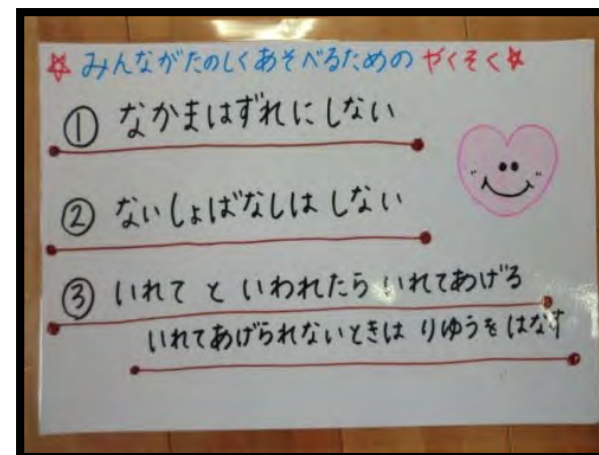 ☆みんながたのしくあそべるための やくそく☆
① なかまはずれに しない
② ないしょばなしは しない
③ いれて と いわれたら いれてあげる
いれてあげられないときは りゆうを はなす